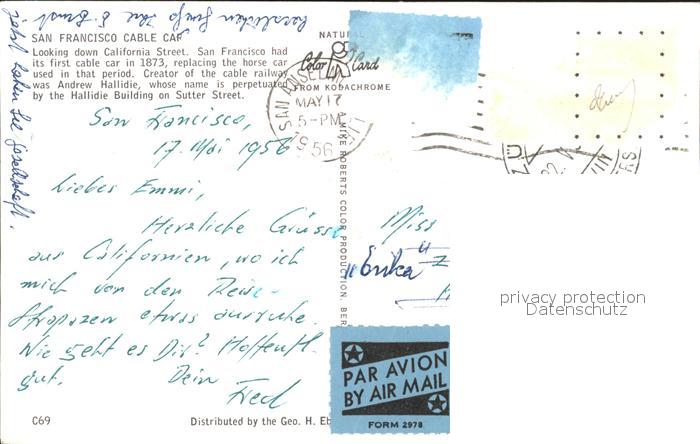 SAN FRANCISCO CABLE CAR
Looking down California Street. San Francisco had
its first cable car in 1873, replacing the horse car
used in that period. Creator of the cable railway
was Andrew Hallidie, whose name is perpetuated
by the Hallidie Building on Sutter Street.
NATURAL
Color Card
FROM KODACHROME
SAN ANSELMO
MAY 17
5-PM
1956
San Francisco,
17. Mai 1956
Liebes Emmi,
Herzliche Grüsse
aus Californien, wo ich
mich von den Reise-
strapazen etwas ausruhe.
Wie geht es Dir? Hoffentl.
gut.
Dein
Fred
herzlichen
jetzt haben Sie Gesellschaft.
MIKE ROBERTS COLOR PRODUCTION, BER
Miss
Erika
privacy protection
Datenschutz
PAR AVION
BY AIR MAIL
FORM 2978
C69
Distributed by the Geo. H. Eb